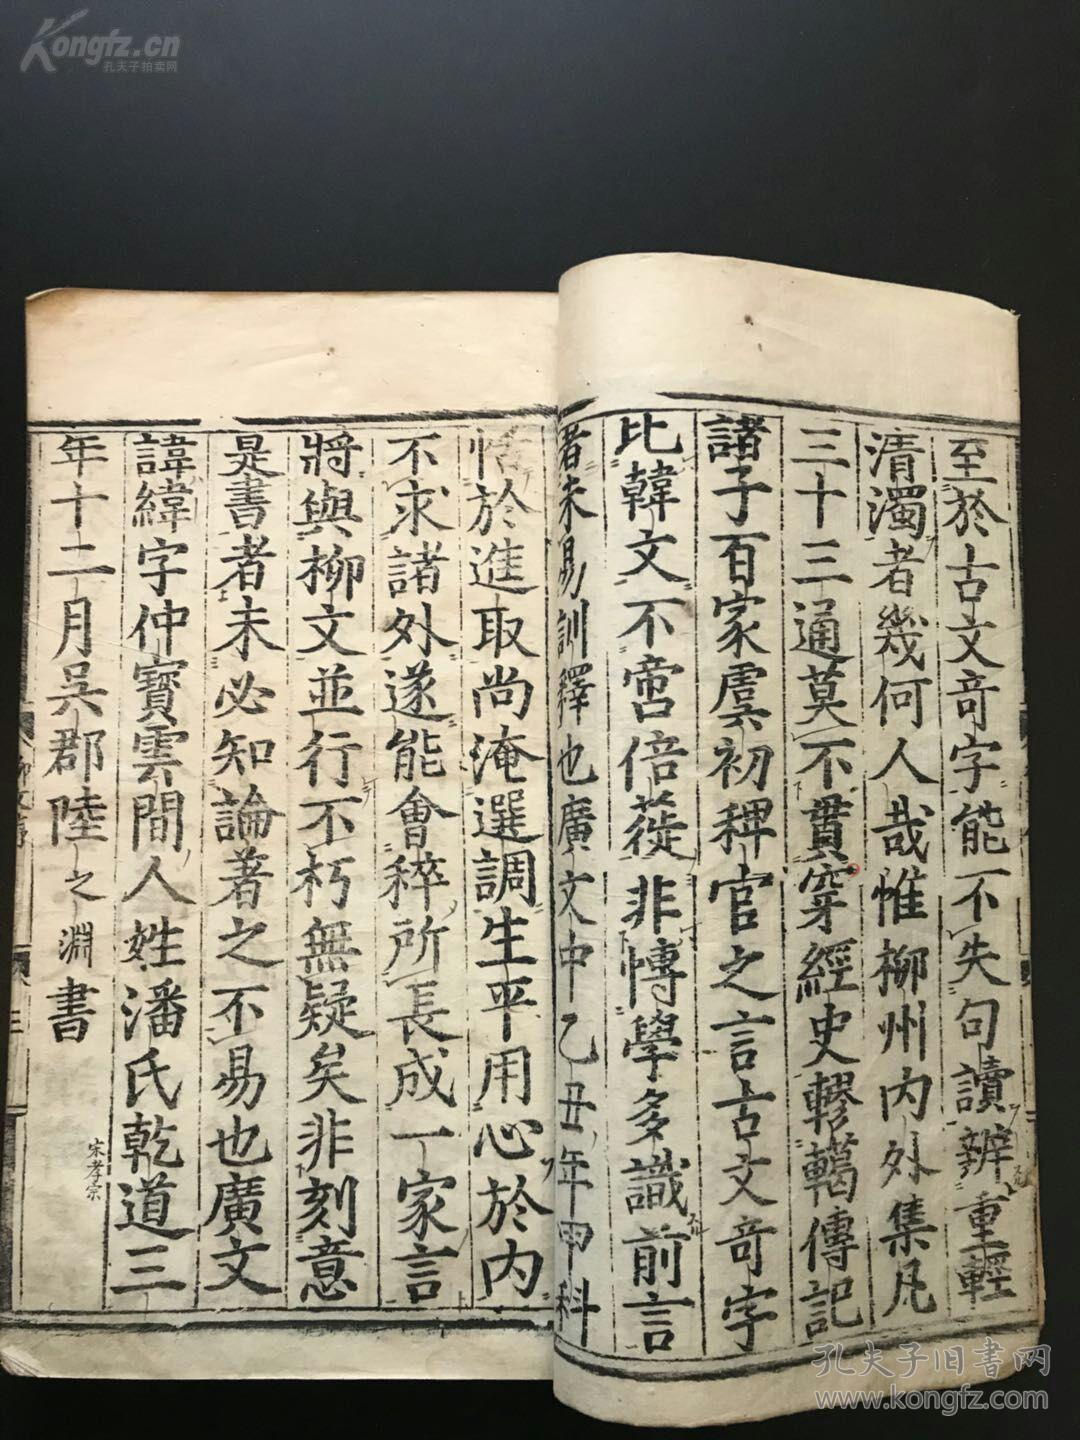 至於古文竒字能不失句讀辨重輕
清濁者幾何人哉惟柳州内外集凡
三十三通莫不貫穿經史轇轕傳記
諸子百家虞初稗官之言古文竒字
比韓文不啻倍蓰非愽學多識前言
者未易訓釋也廣文中乙丑年甲科
恬於進取尚淹選調生平用心於内
不求諸外遂能會稡所長成一家言
將與柳文並行不朽無疑矣非刻意
是書者未必知論著之不易也廣文
諱緯字仲寶雲間人姓潘氏乾道三
宋孝宗
年十二月吳郡陸之淵書
Kongfz.cn
孔夫子拍卖网
孔夫子旧书网
www.kongfz.com